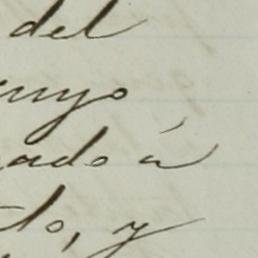 del
uyo
ado á
to, y